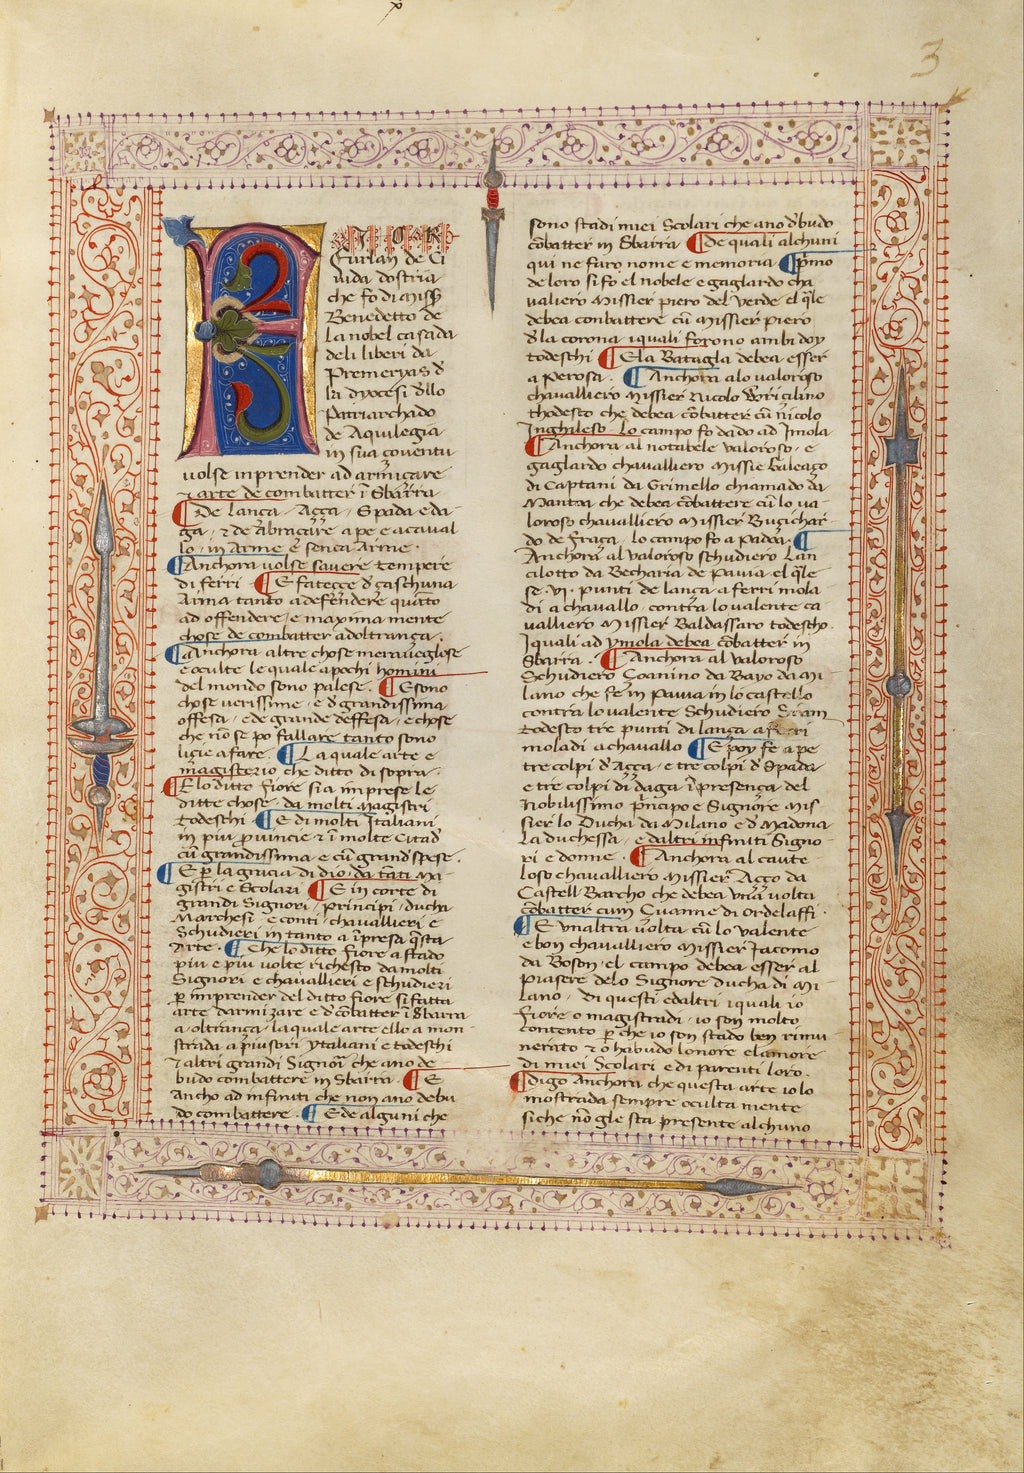 3
FIOR
Furlan de Ci
vida dostria
che fo di miss
Benedetto de
la nobel casada
deli liberi da
Premeryas d
la dyocesi dllo
Patriarchado
de Aquilegia
in sua coventu
volse inprender ad armiçare
& arte de combatter ī Sbarra
De Lança, Açça, Spada e da
ga, & de abraçare a pe e acaval
lo, in arme e sença Arme.
Anchora volse savere tempere
di ferri. E fateççe d çaschuna
Arma tanto a defendere quāto
ad offendere, e maxima mente
chose de combatter adoltrança.
Anchora altre chose meravegliose
e oculte le quale a pochi homini
del mondo sono palese. E sono
chose verissime, e d grandissima
offesa, e de grande deffesa, e chose
che nō se po fallare tanto sono
liçie a fare. La quale arte e
magisterio che ditto di sopra.
E lo ditto fiore sia imprese le
ditte chose, da molti magistri
todeschi. E di molti Italiani
in piu provincie & ī molte Citad
cū grandissima e cū grand spese.
E p la gracia di dio, da tati Ma-
gistri e Scolari. E in corte di
grandi Signori, principi, ducha
Marchesi e conti, chavallieri e
Schudieri in tanto a īpresa qsta
Arte. Che lo ditto Fiore a stado
piu e piu volte richesto da molti
Signori e chavallieri e schudieri
p imprender del ditto fiore si fatta
arte darmizare e d cōbatter ī Sbarra
a oltrança, laquale arte ello a mon-
strada a piusori ytaliani e todeschi
& altri grandi Signori che ano de
budo combattere in Sbarra. E
ancho ad infiniti che non ano debu
do combattere. E de alguni che
sono stadi miei Scolari che ano dbudo
cōbatter in Sbarra. De quali alchuni
qui ne faro nome e memoria. Pmo
de loro si fo el nobele e gagliardo cha
valiero Missier piero del verde el qle
debea conbattere cū Missier piero
d la corona iquali forono ambi doy
todeschi. E la Batagla debea esser
a Perosa. Anchora alo valoroso
chavalliero Missier Nicolo Voriçilino
thodesco che debea cōbatter cū nicolo
Inghileso. Lo campo fo dado ad Imola
Anchora al notabele valoroso, e
gagliardo chavalliero Missie Galeaço
di Captani da Grimello chiamado da
Mantoa che debea cōbattere cū lo va-
loroso chavalliero Missier Buçichar
do de fraça, lo campo fo a padoa.
Anchora al valoroso schudiero Lan
çilotto da Becharia de Pavia el qle
fe .VI. punti de lança a ferri mola
di a chavallo contra lo valente ca
valliero Missier Baldassaro todescho.
Iquali ad ymola debea cōbatter in
Sbarra. Anchora al valoroso
Schudiero Çoanino da Bayo da Mi-
lano che fe in Pavia in lo castello
contra lo valente Schudiero Sram
todesco tre punti di lança a ferri
moladi a chavallo. E poy fe a pe
tre colpi d Açça, e tre colpi d Spada
e tre colpi di daga ī presença del
Nobilissimo principo e Signore Mis
sier lo Ducha da Milano e d Madona
la duchessa, e daltri infiniti Signo-
ri e donne. Anchora al caute
loso chavalliero Missier Açço da
Castell Barcho che debea una volta
cōbatter cum Çuanne di Ordelaffi.
E unaltra volta cū lo valente
e bon chavalliero Missier Jacomo
da Boson, el campo debea esser al
piasere delo Signore ducha di Mi-
Lano, di questi e daltri iquali io
Fiore o magistradi, io son molto
contento p che io son stado ben rimu
nerato & o habudo lonore e lamore
di miei Scolari e di parenti loro.
digo Anchora che questa arte io lo
mostrada sempre oculta mente
siche nō gle sta presente alchuno